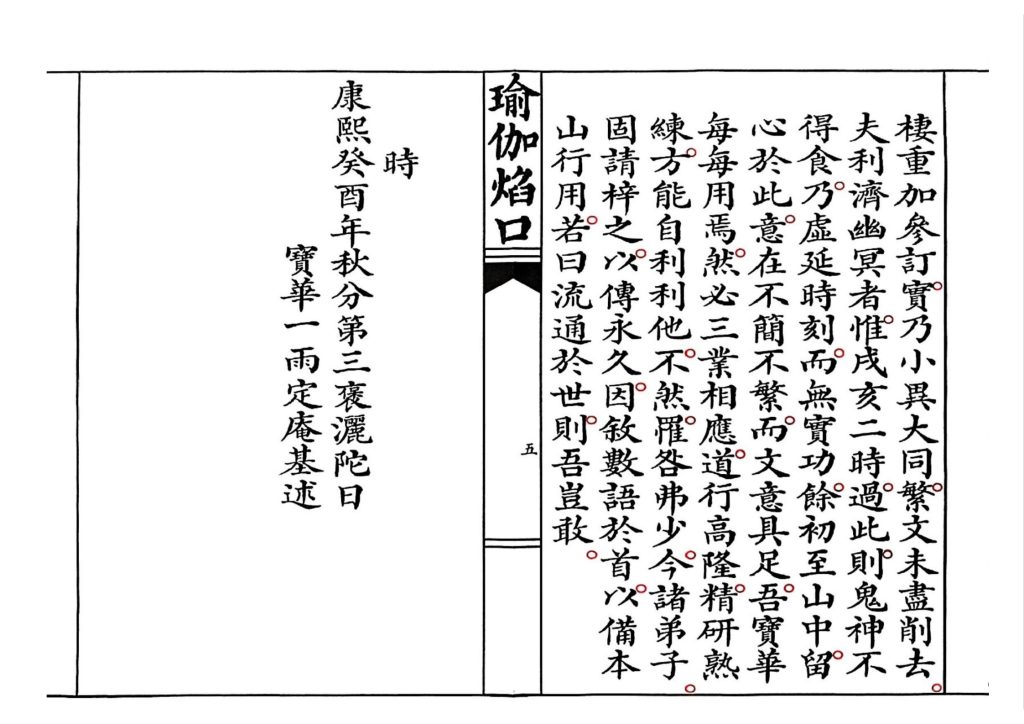 棲重加參訂。實乃小異大同。繁文未盡削去。
夫利濟幽冥者。惟戌亥二時。過此則。鬼神不
得食。乃虛延時刻。而無實功。餘初至山中。留
心於此。意在不簡不繁。而文意具足。吾寶華
每每用焉。然必三業相應。道行高隆。精研熟
練。方能自利利他。不然。罹咎弗少。今諸弟子。
固請梓之。以傳永久。因敘數語於首。以備本
山行用。若曰流通於世。則吾豈敢。
瑜伽焰口
五
時
康熙癸酉年秋分第三褒灑陀日
寶華一雨定庵基述